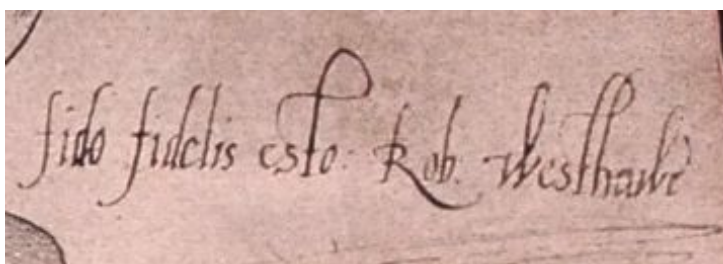 fido fidelis esto: Rob. Westhawe